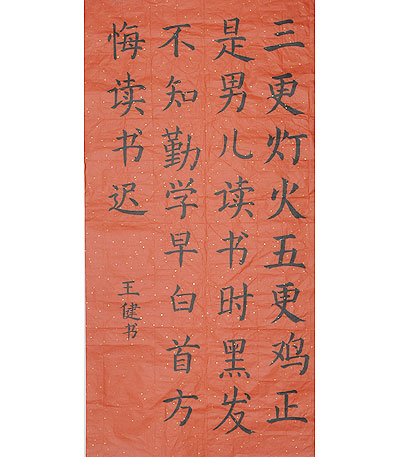 三更灯火五更鸡正
是男儿读书时黑发
不知勤学早白首方
悔读书迟
王健书